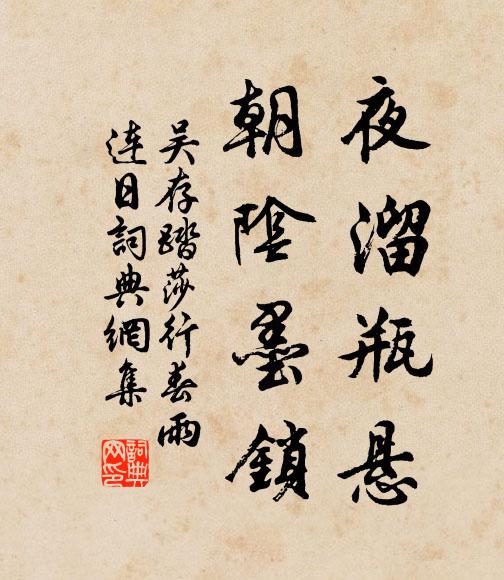 夜溜瓶悬
朝陰墨鎖
吴存踏莎行春雨
連日詞典網集
詞典
网印